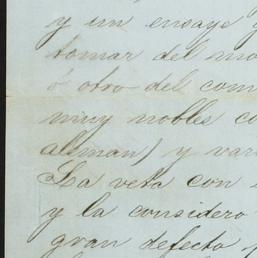 y un ensaye
tomar del
ó otro del com
muy nobles co
aliman) y var
La veta con
y la considero
gran defecto